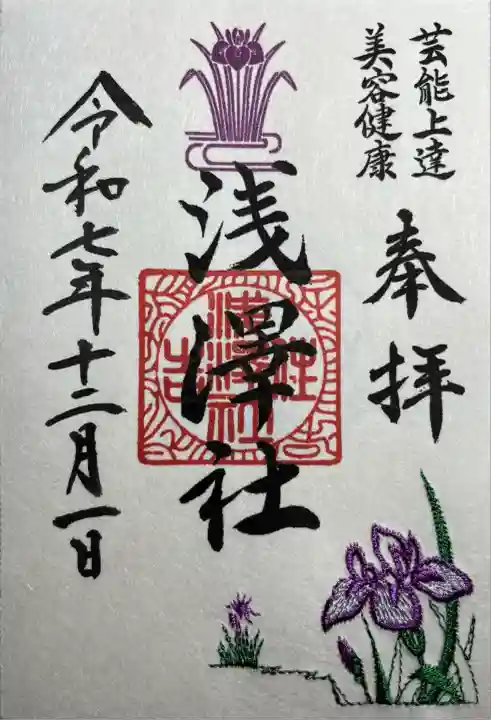 芸能上達
美容健康
奉拝
浅澤社
住吉
浅澤社
令和七年十二月一日